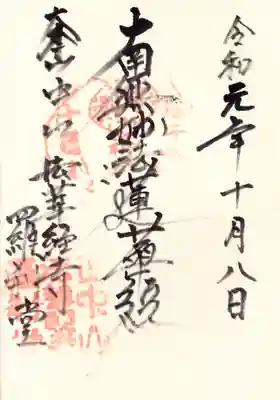 令和元年十月八日
南無妙法蓮華経
中山法華経寺
羅刹堂